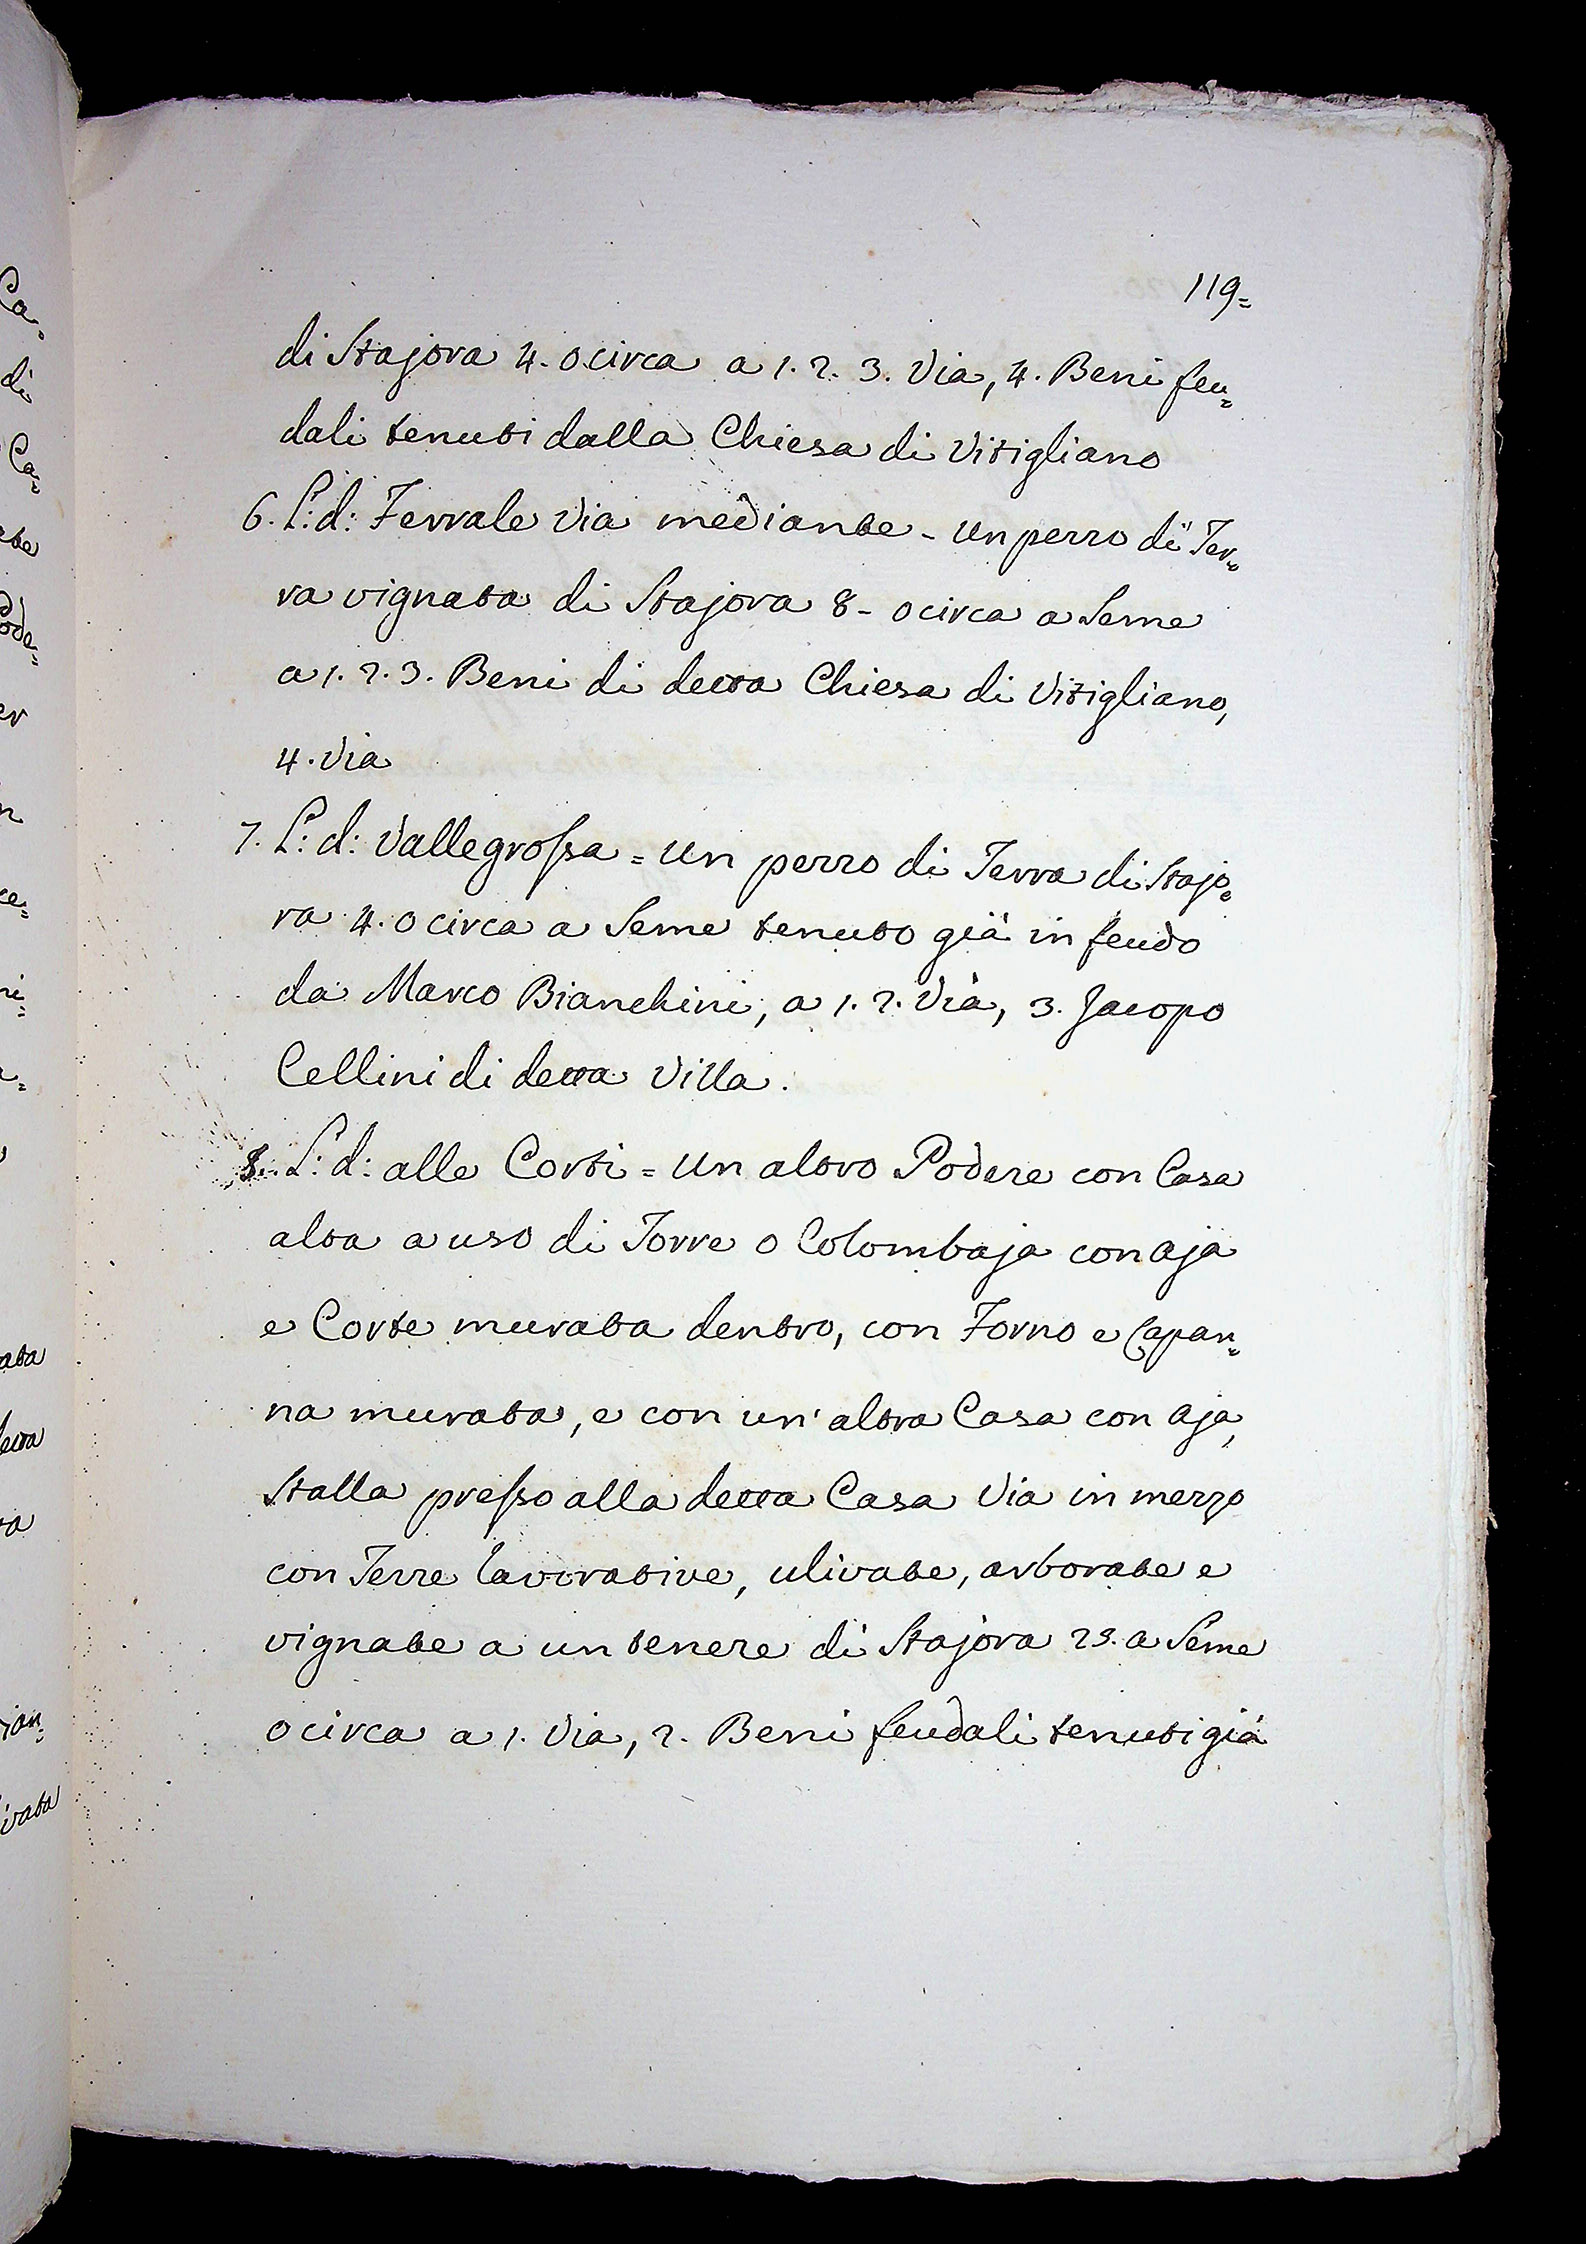 119=
di Stajora 4. o circa a 1. 2. 3. Via, 4. Beni feu=
dali tenuti dalla Chiesa di Vitigliano
6. L: d: Ferrale Via mediante - Un pezzo di Ter=
ra vignata di Stajora 8 - o circa a Seme
a 1. 2. 3. Beni di detta Chiesa di Vitigliano,
4. Via
7. L: d: Vallegrossa = Un pezzo di Terra di Stajo=
ra 4. o circa a Seme tenuto già in feudo
da Marco Bianchini, a 1. 2. Via, 3. Jacopo
Cellini di detta Villa.
8. L: d: alle Corti = Un altro Podere con Casa
alta a uso di Torre o Colombaja con aja
e Corte murata dentro, con Forno e Capan=
na murata, e con un' altra Casa con aja,
Stalla presso alla detta Casa Via in mezzo
con Terre lavorative, ulivate, arborate e
vignate a un tenere di Stajora 25. a Seme
o circa a 1. Via, 2. Beni feudali tenuti già